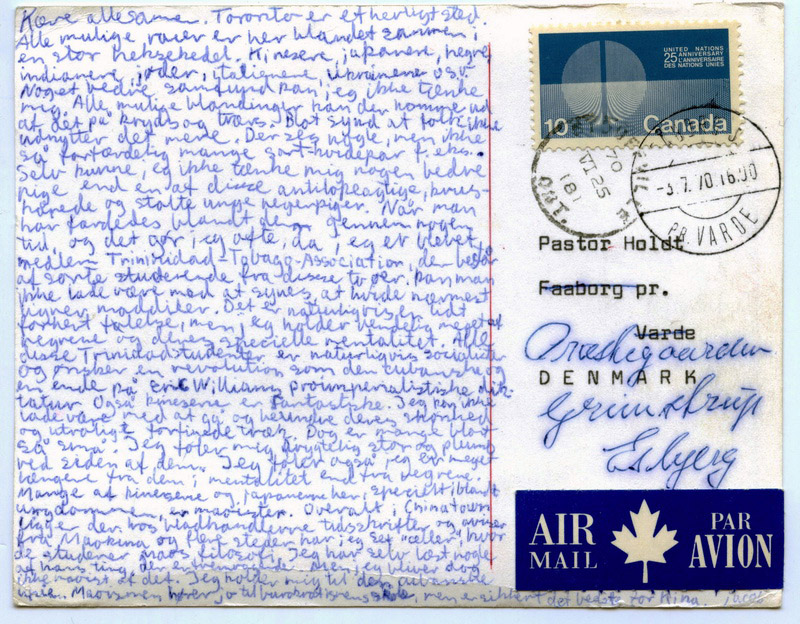 Kære allesamen. Toronto er et herligt sted.
Alle mulige racer er her blandet sammen i
en stor heksekedel. Kinesere, japanere, negre,
indianere, jøder, italienere, ukrainere osv.
Noget bedre samfund kan jeg ikke tænke
mig. Alle mulige blandinger kan der komme ud
af det på kryds og tværs. Blot synd at folk ikke
udnytter det mere. Der er nogle, men ikke
så forfærdelig mange sort-hvide par f. eks.
Selv kunne jeg ikke tænke mig nogen bedre
pige end en af disse antilopeagtige, krus-
hårede og stolte unge negerpiger. Når man
har færdedes blandt dem gennem nogen
tid, og det gør jeg ofte, da jeg er blevet
medlem Trininidad-Tobago-Association, der består
af sorte studerende fra disse to øer, kan man
ikke lade være med at synes, at hvide nærmest
ligner maddiker. Det er naturligvis en lidt
forkert følelse, men jeg holder vendelig meget af
negrene og deres specielle mentalitet. Alle
disse Trinidadstudenter er naturligvis socialister
og ønsker en revolution som den cubanske og
en ende på Eric Williams proimperialistiske dik-
tatur. Også kineserne er fantastiske. Jeg kan ikke
lade være med at gå og beundre deres skønhed
og utroligt fortjenede træk. Dog er de
så små. Jeg føler mig frygtelig stor og plump
ved siden af dem. Jeg føler også jeg er meget
længere fra dem i mentalitet end fra negrene.
Mange af kineserne og japanerne her, specielt blandt
ungdommen, er maoister. Overalt i Chinatown
er der hos bladhandlerne tidsskrifter og aviser
fra og flere steder har jeg set celler, hvor
de studerer maos filosofi. Jeg har selv læst nogle
af hans ting, der er fremragende. Men jeg bliver dog
ikke maoist af det. Jeg holder mig til den cubanske
Maoismen hører jo til men er sikkert det bedste for Kina. Jacob
UNITED NATIONS
25 ANNIVERSARY
L'ANNIVERSAIRE
DES NATIONS UNIES
10 Canada
70
VI 25
181
ONT.
-3.7.70.16.00
PR. VARDE
Pastor Holdt
Faaborg pr.
Varde
DENMARK
Grimstrup
Esbjerg
AIR MAIL
PAR AVION